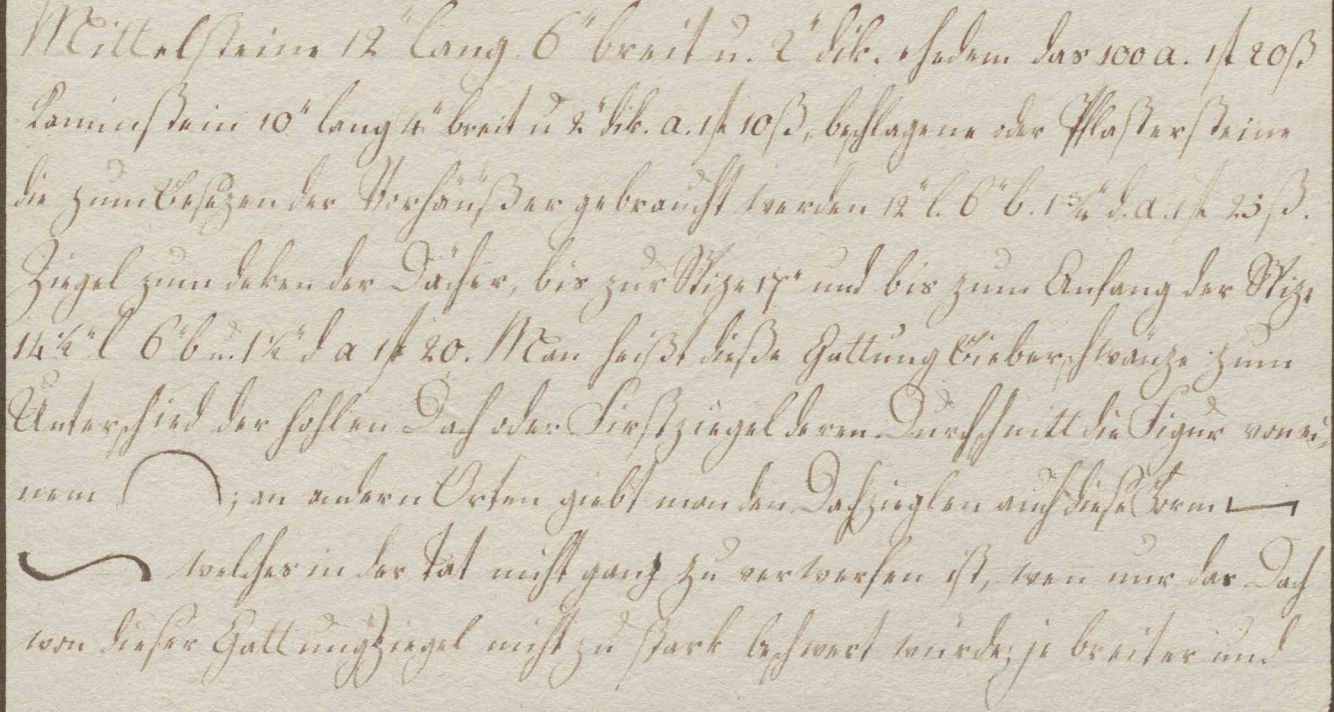 Mittelsteine 12" lang 6" breit u. 2" dik. ehedem das 100 a. 1 f 20 ß
Kaminstein 10" lang 4" breit u 2" dik. a. 1 f 10 ß, beschlagene oder Pflastersteine
die zum Besezen der Vorhäußer gebraucht werden 12" l. 6" b. 1¾" d. a. 1 f 25 ß.
Ziegel zum deken der Dächer, bis zur Spize 17" und bis zum Anfang der Spize
14½" l 6" b u. 1½" d a 1 f 20. Man heißt dieße Gattung Bieberschwänze zum
Unterschied der hohlen Dach oder Firstziegel deren Durchschnitt die Figur von ei-
nem ; an andern Orten giebt man den Dachzieglen auch diese Form
welches in der Tat nicht ganz zu verwerfen ist, wen nur das Dach
von dieser Gattung Ziegel nicht zu stark beschwert würde; je breiter und